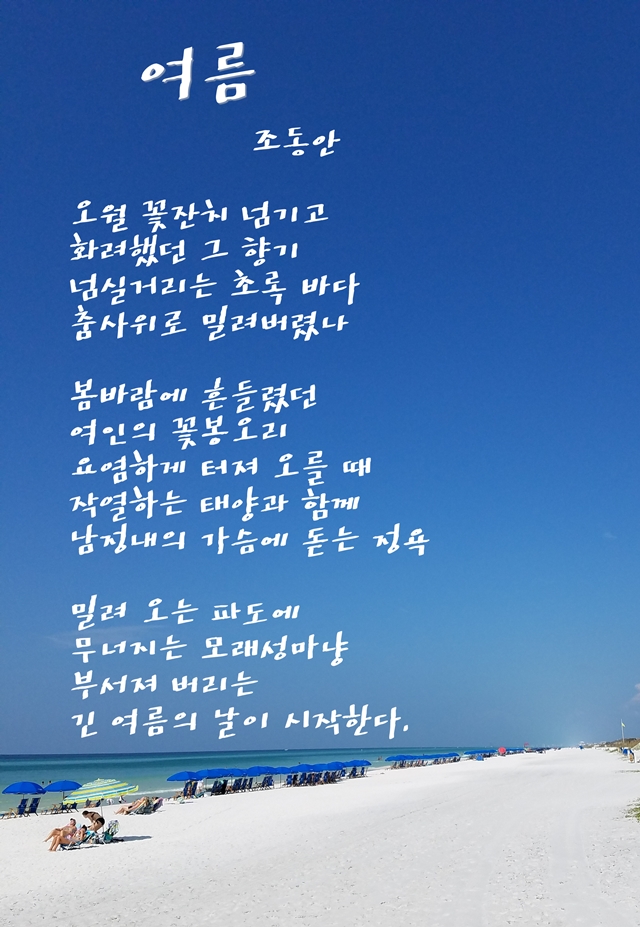 여름
조동안
오월 꽃잔치 넘기고
화려했던 그 향기
넘실거리는 초록 바다
춤사위로 밀려버렸나
봄바람에 흔들렸던
여인의 꽃봉오리
요염하게 터져 오를 때
작열하는 태양과 함께
남정내의 가슴에 돋는 정욕
밀려 오는 파도에
무너지는 모래성마냥
부서져 버리는
긴 여름의 날이 시작한다.